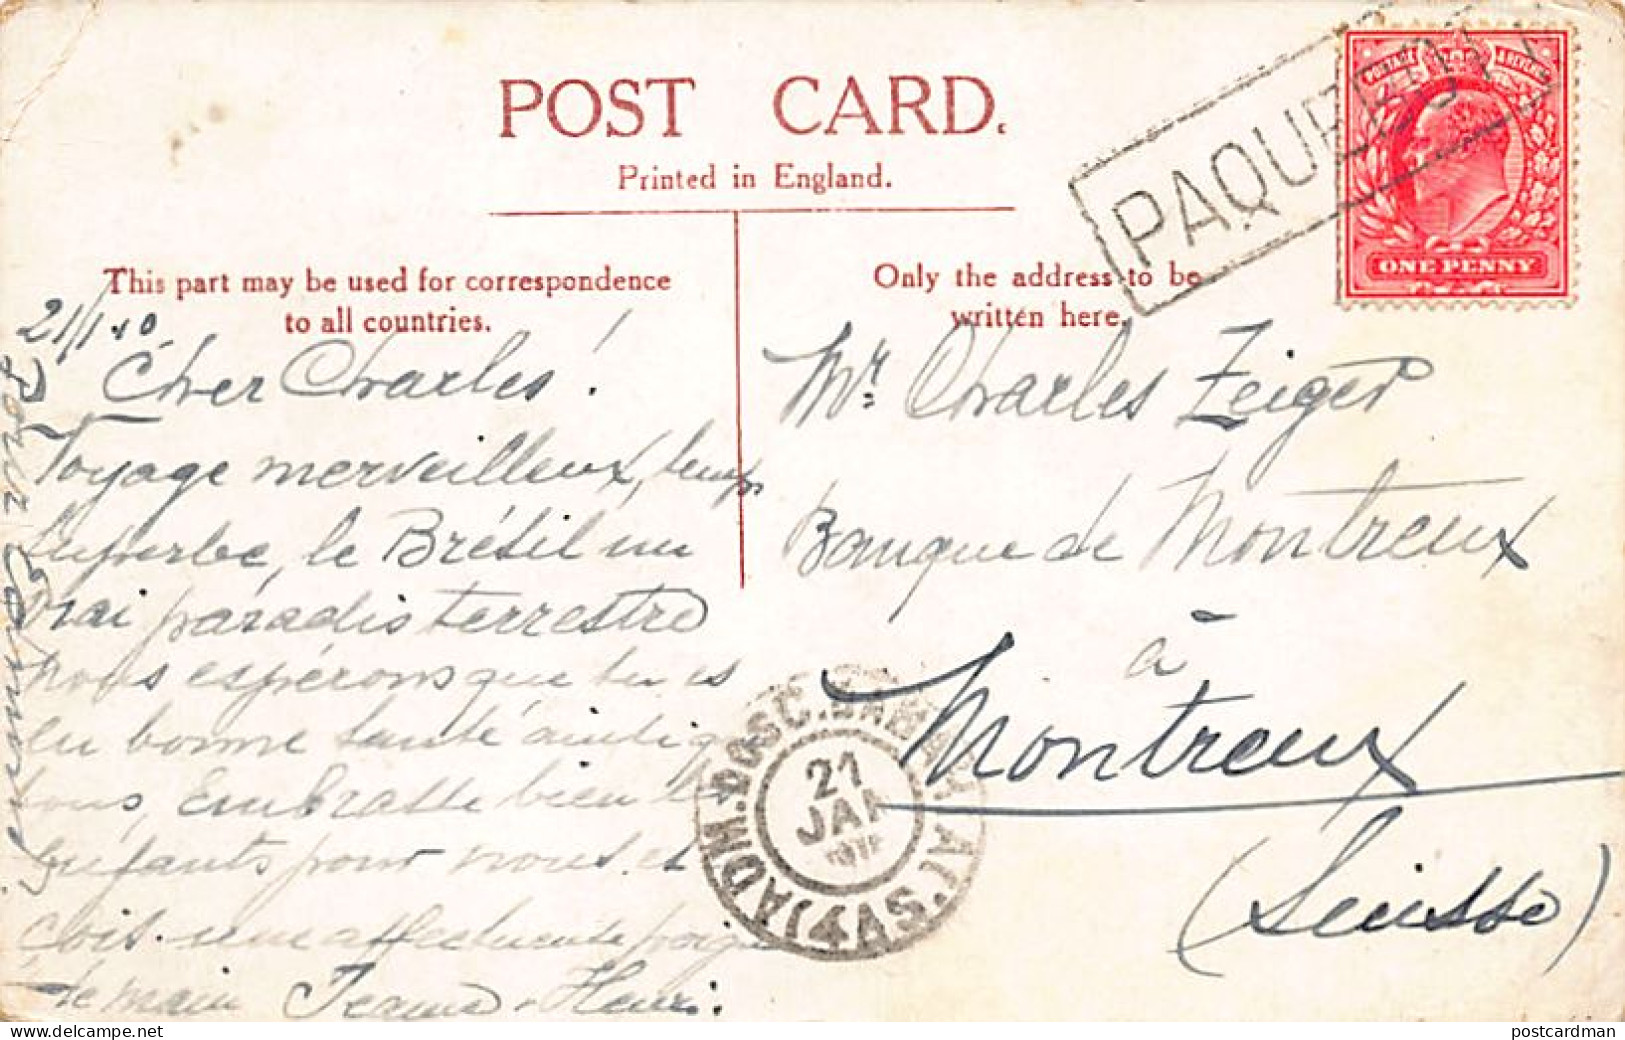 POST CARD.
Printed in England.
This part may be used for correspondence
to all countries.
Only the address to be
written here.
PAQUEBOT
POSTAGE & REVENUE
ONE PENNY
21/1.10.
Cher Charles!
Voyage merveilleux, temps
superbe, le Brésil un
vrai paradis terrestre
nous espérons que tu es
en bonne santé ainsi que
tous, Embrasse bien les
enfants pour nous et
une affectueuse poignée
de main Jeanne + Henri.
Mr. Charles Zeiger
Banque de Montreux
à
Montreux
(Suisse)
21
JAN
(4AS.)
postcardman
www.delcampe.net